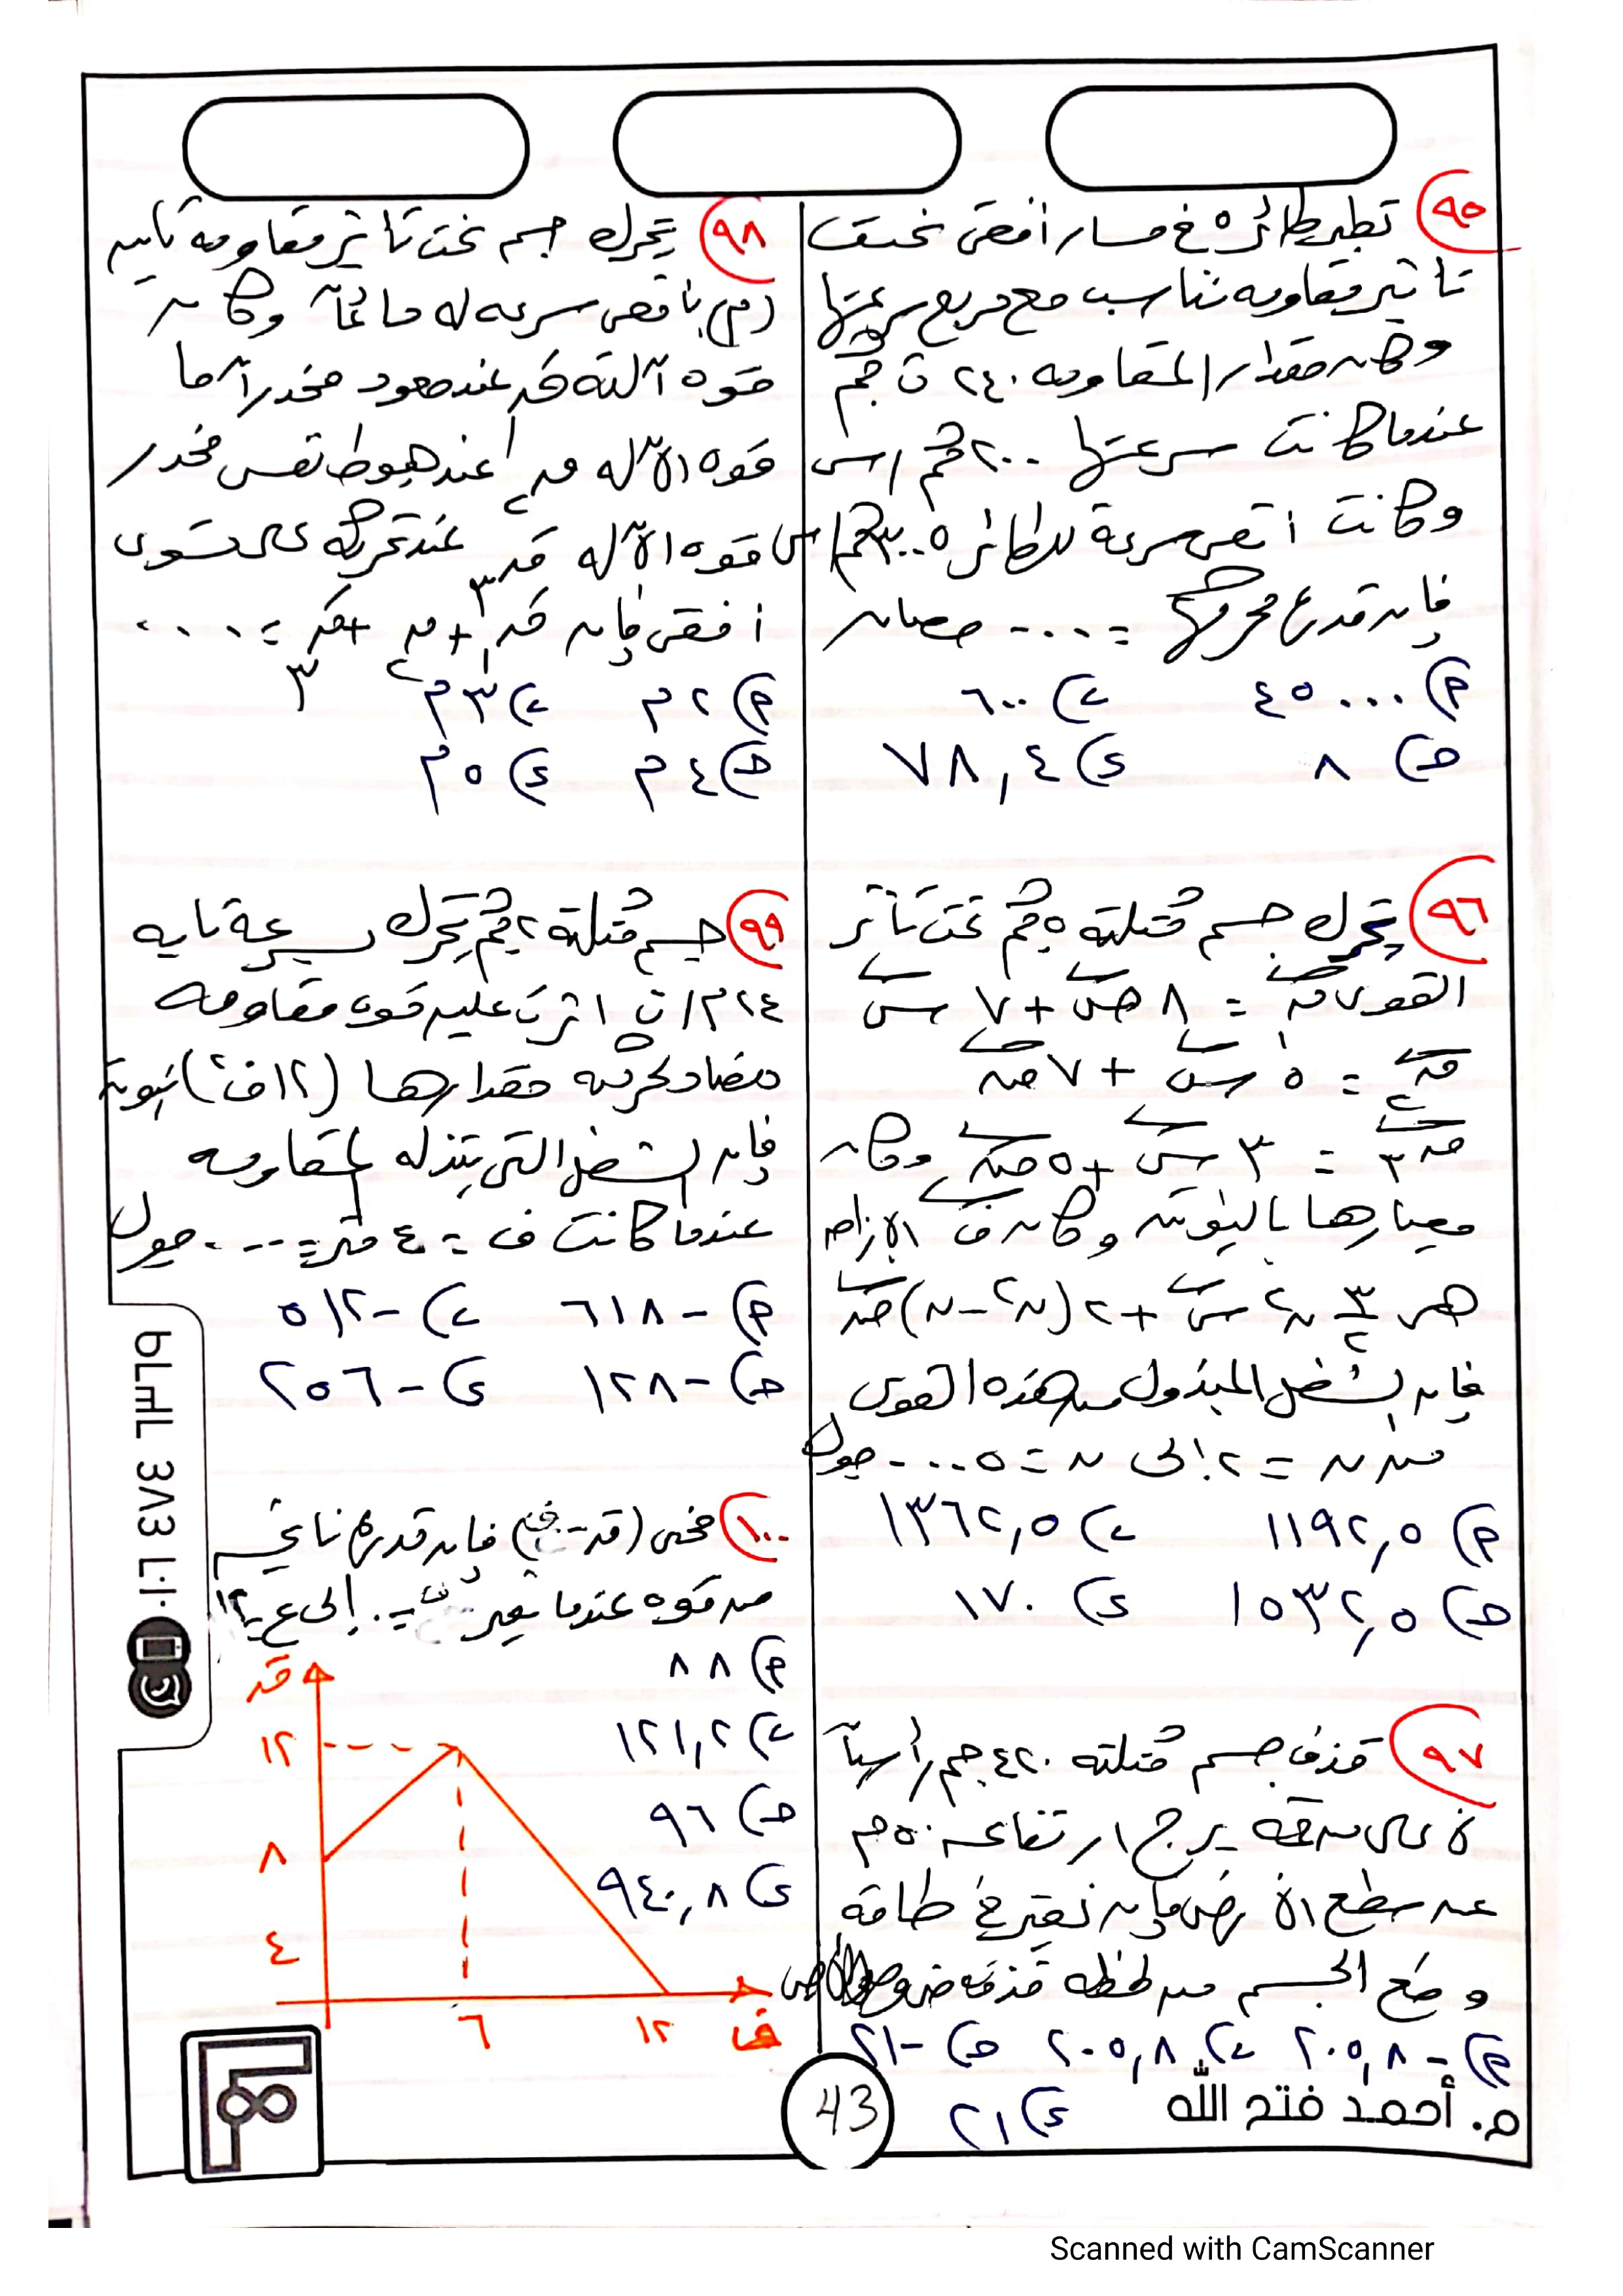 ٩٥ تطير طائره فى مسار افقى تحت
تأثير مقاومه تتناسب مع مربع سرعتها
وكان مقدار المقاومه ٢٤٠ ث كجم
عندما كانت سرعتها ٢٠٠ كم/س
وكانت اقصى سرعة للطائره ٣٠٠ كم/س
فإن قدره محركها = .... حصان
٩) ٤٥٠٠٠ ب) ٦٠٠
ح) ٨ د) ٧٨,٤
٩٦ يتحرك جسم كتلته ٥ كجم تحت تأثير
القوى ق١ = ٨ ص + ٧ س
ق٢ = ٥ س + ٧ ص
ق٣ = ٣ س + ٥ ص وكان
معيارها بالنيوتن وكان ف الازاحه
هى ٣/٢ ن٢ س + ٢(ن٢ - ن) ص
فإن الشغل المبذول من هذه القوى
من ن = ٢ إلى ن = ٥ .... جول
٩) ١١٩٢,٥ ب) ١٣٦٢,٥
ح) ١٥٣٢,٥ د) ١٧٠
٩٧ قذف جسم كتلته ٤٢٠ جم رأسياً
لأعلى من قمة برج ارتفاعه ٥٠ م
عن سطح الأرض فإن التغير فى طاقة
وضع الجسم من لحظه قذفه
٩) -٢٠٥,٨ ب) ٢٠٥,٨ ح) -٢١
د) ٢١
٩٨ يتحرك جسم تحت تأثير مقاومه ثابته
(م) بأقصى سرعه له دائماً وكان
قوه آلته ق١ عند صعود منحدر أما
قوه الآله ق٢ عند هبوط نفس المنحدر
قوه الآله ق٣ عند تحركه على مستوى
افقى فإن ق١ + ق٢ + ق٣ = ....
٩) ٢م ب) ٣م
ح) ٤م د) ٥م
٩٩ جسم كتلته ٢ كجم يتحرك بسرعة ثابته
٢٤ م/ث اثرت عليه قوه مقاومه
مضاد لحركته مقدارها (١٢ف٢) نيوتن
فإن الشغل التى تبذله المقاومه
عندما كانت ف = ٤ متر = .... جول
٩) -٦١٨ ب) -٥١٢
ح) -١٢٨ د) -٢٥٦
١٠٠ منحنى (ق - ف) فإن قدره ناتج
من قوه عندما تتغير ف = ٠ إلى ع = ١٢
٩) ٨٨
ب) ١٢١,٢
ح) ٩٦
د) ٩٤٠,٨
ق
١٢
٨
٤
٦ ١٢ ف
م. أحمد فتح الله
43
Scanned with CamScanner